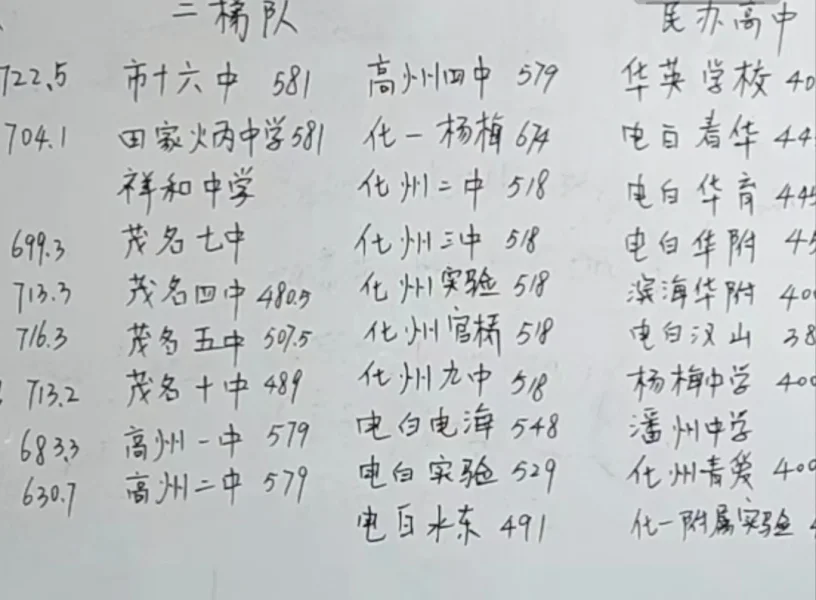 二梯队 民办高中
722.5 市十六中 581 高州四中 579 华英学校 40
704.1 田家炳中学 581 化一杨梅 674 电白春华 44
祥和中学 化州二中 518 电白华育 445
699.3 茂名七中 化州三中 518 电白华附 45
713.3 茂名四中 480.5 化州实验 518 滨海华附 400
716.3 茂名五中 507.5 化州官桥 518 电白汉山 38
713.2 茂名十中 489 化州九中 518 杨梅中学 400
683.3 高州一中 579 电白电海 548 潘州中学
630.7 高州二中 579 电白实验 529 化州青葵 400
电白水东 491 化一附属实验